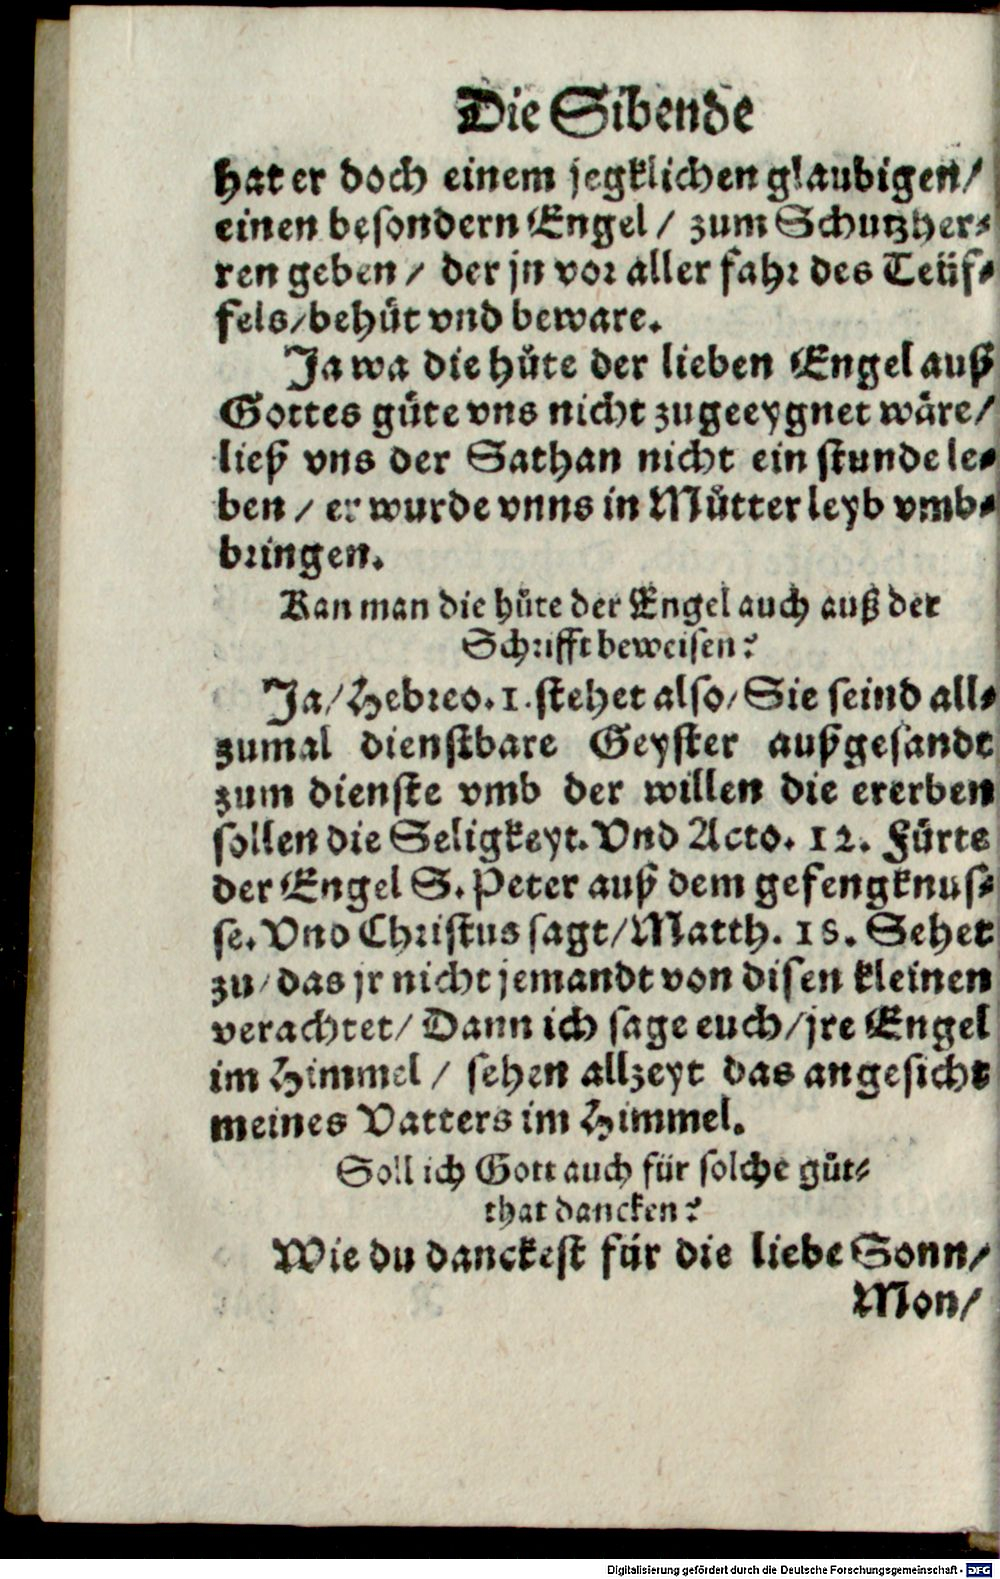 Die Sibende
hat er doch einem jegklichen glaubigen/
einen besondern Engel / zum Schutzher⸗
ren geben / der jn vor aller fahr des Teüf⸗
fels/behuͤt vnd beware.
Ja wa die huͤte der lieben Engel auß
Gottes guͤte vns nicht zugeeygnet waͤre/
ließ vns der Sathan nicht ein stunde le⸗
ben / er wurde vnns in Muͤtter leyb vmb⸗
bringen.
Kan man die huͤte der Engel auch auß der
Schrifft beweisen?
Ja/Hebreo. 1. stehet also/Sie seind all⸗
zumal dienstbare Geyster außgesandt
zum dienste vmb der willen die ererben
sollen die Seligkeyt. Vnd Acto. 12. Fürte
der Engel S. Peter auß dem gefengknus⸗
se. Vnd Christus sagt/Matth. 18. Sehet
zu/das jr nicht jemandt von disen kleinen
verachtet/Dann ich sage euch/jre Engel
im Himmel / sehen allzeyt das angesicht
meines Vatters im Himmel.
Soll ich Gott auch für solche guͤt⸗
that dancken?
Wie du danckest für die liebe Sonn/
Mon/
Digitalisierung gefördert durch die Deutsche Forschungsgemeinschaft - DFG